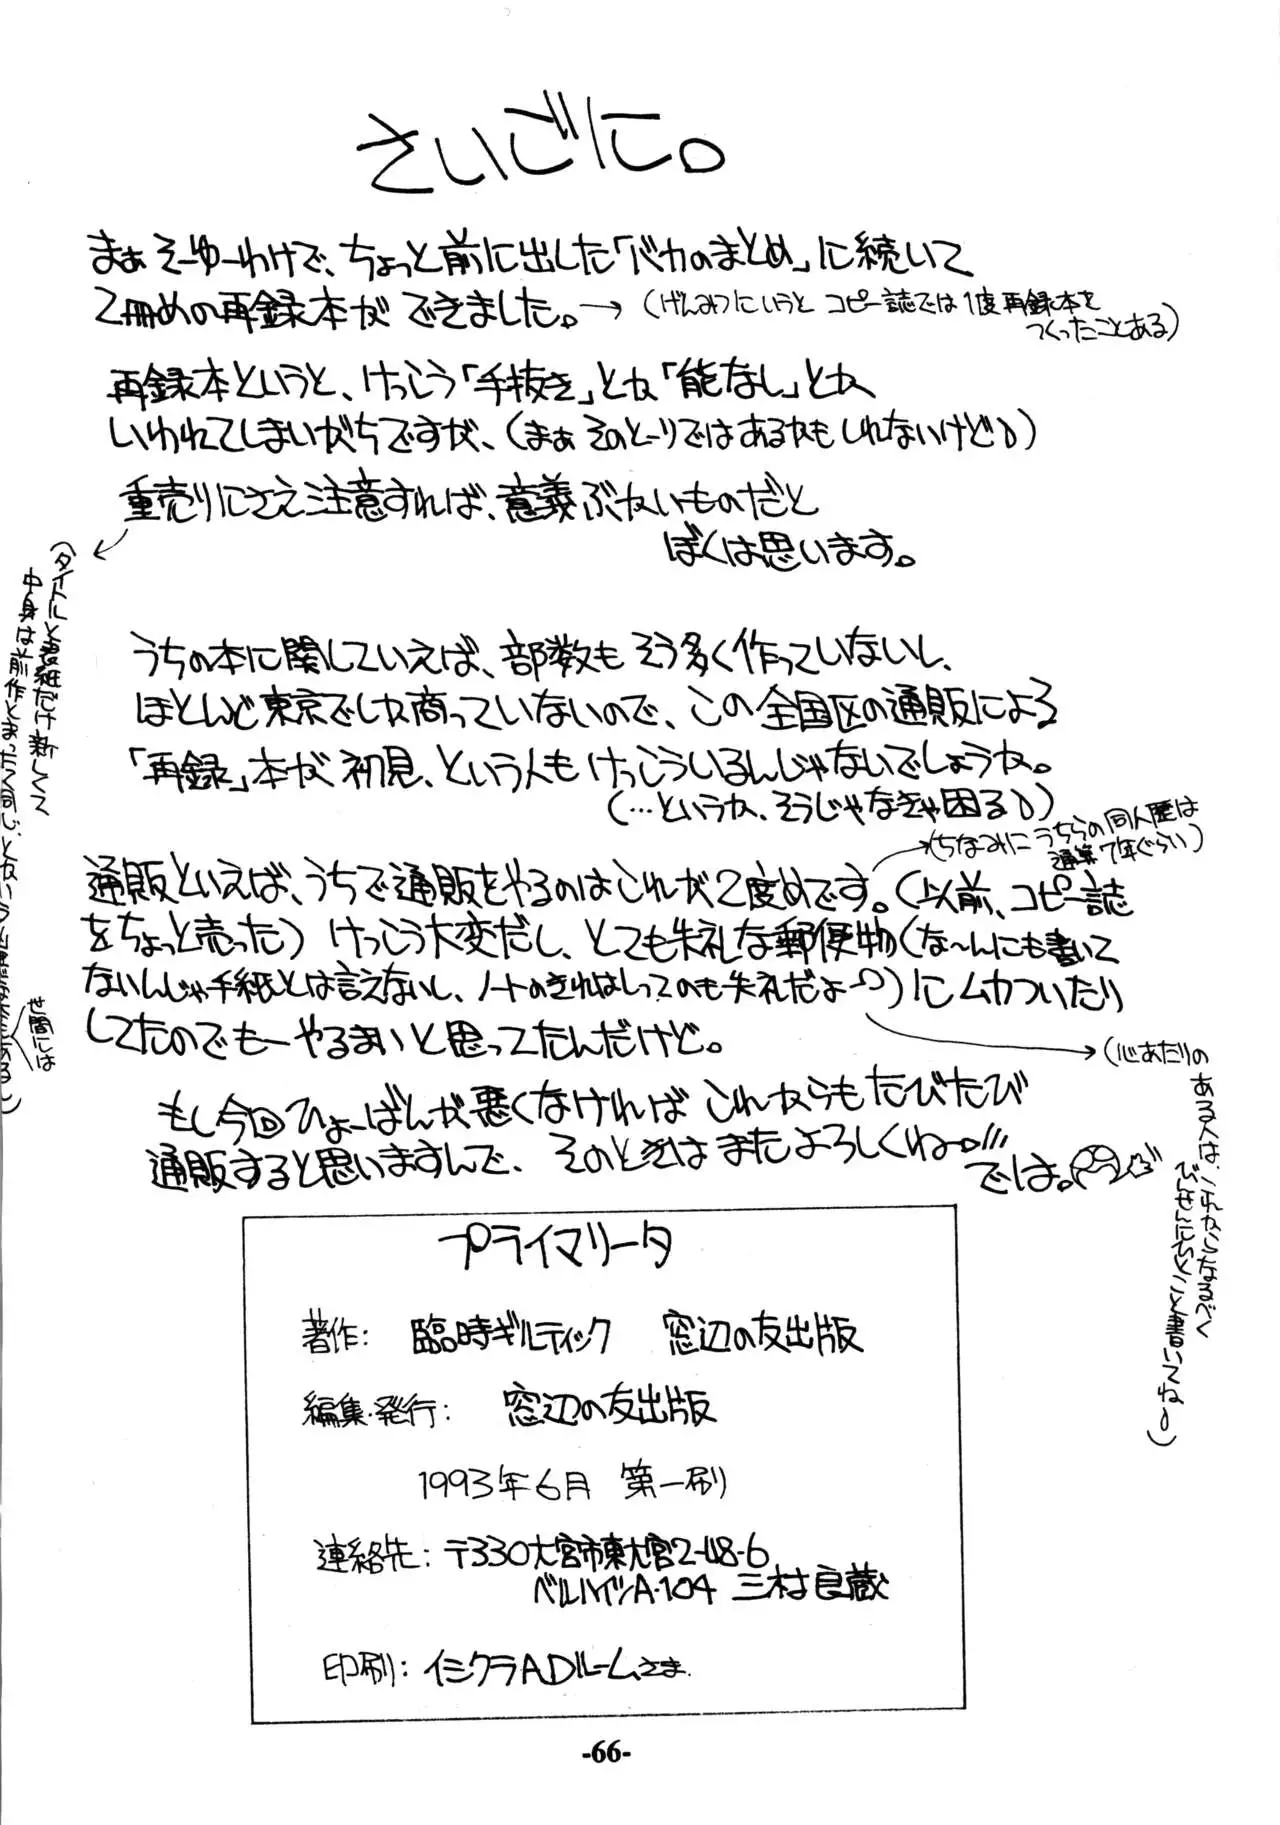 さいごに。
まぁそーゆーわけで、ちょっと前に出した「バカのまとめ」に続いて
2冊めの再録本ができました。→(げんみつにいうと コピー誌では1度再録本を
つくったことある)
再録本というと、けっこう「手抜き」とか「能なし」とか
いわれてしまいがちですが、(まぁそのとーりではあるかもしれないけど)
重売りにさえ注意すれば、意義ぶかいものだと
ぼくは思います。
(タイトルと表紙だけ新しくて
中身は前作とまったく同じ、とかいう
世間には
うちの本に関していえば、部数もそう多く作っていないし、
ほとんど東京でしか商っていないので、この全国区の通販による
「再録」本が初見、という人もけっこういるんじゃないでしょうか。
(…というか、そうじゃなきゃ困る)
(ちなみにうちらの同人歴は
通算7年ぐらい)
通販といえば、うちで通販をやるのはこれが2度めです。(以前、コピー誌
をちょっと売った)けっこう大変だし、とても失礼な郵便物(な〜んにも書いて
ないんじゃ手紙とは言えないし、ノートのきれはしってのも失礼だよー)にムカついたり
してたのでもーやるまいと思ってたんだけど。
→(心あたりの
ある人は、これからなるべく
びんせんにひとこと書いてね)
もし今回ひょーばんが悪くなければこれからもたびたび
通販すると思いますんで、そのときはまたよろしくねー。
では。
プライマリータ
著作: 臨時ギルティック 窓辺の友出版
編集・発行: 窓辺の友出版
1993年6月 第一刷
連絡先: 〒330大宮市東大宮2-48-6
ベルハイツA・104 三村良蔵
印刷: イシクラADルームさま
-66-